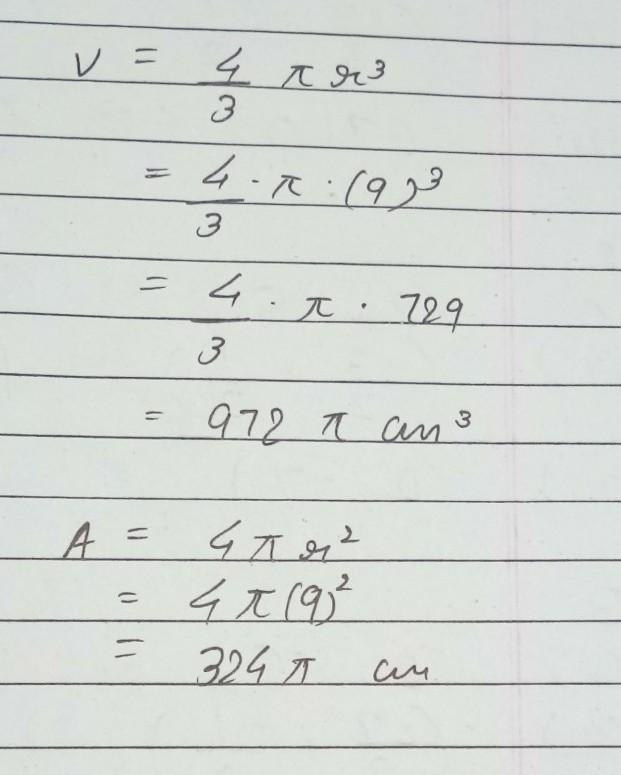 V = 4/3 π r³
= 4/3 · π · (9)³
= 4/3 · π · 729
= 972 π cm³
A = 4 π r²
= 4 π (9)²
= 324 π cm